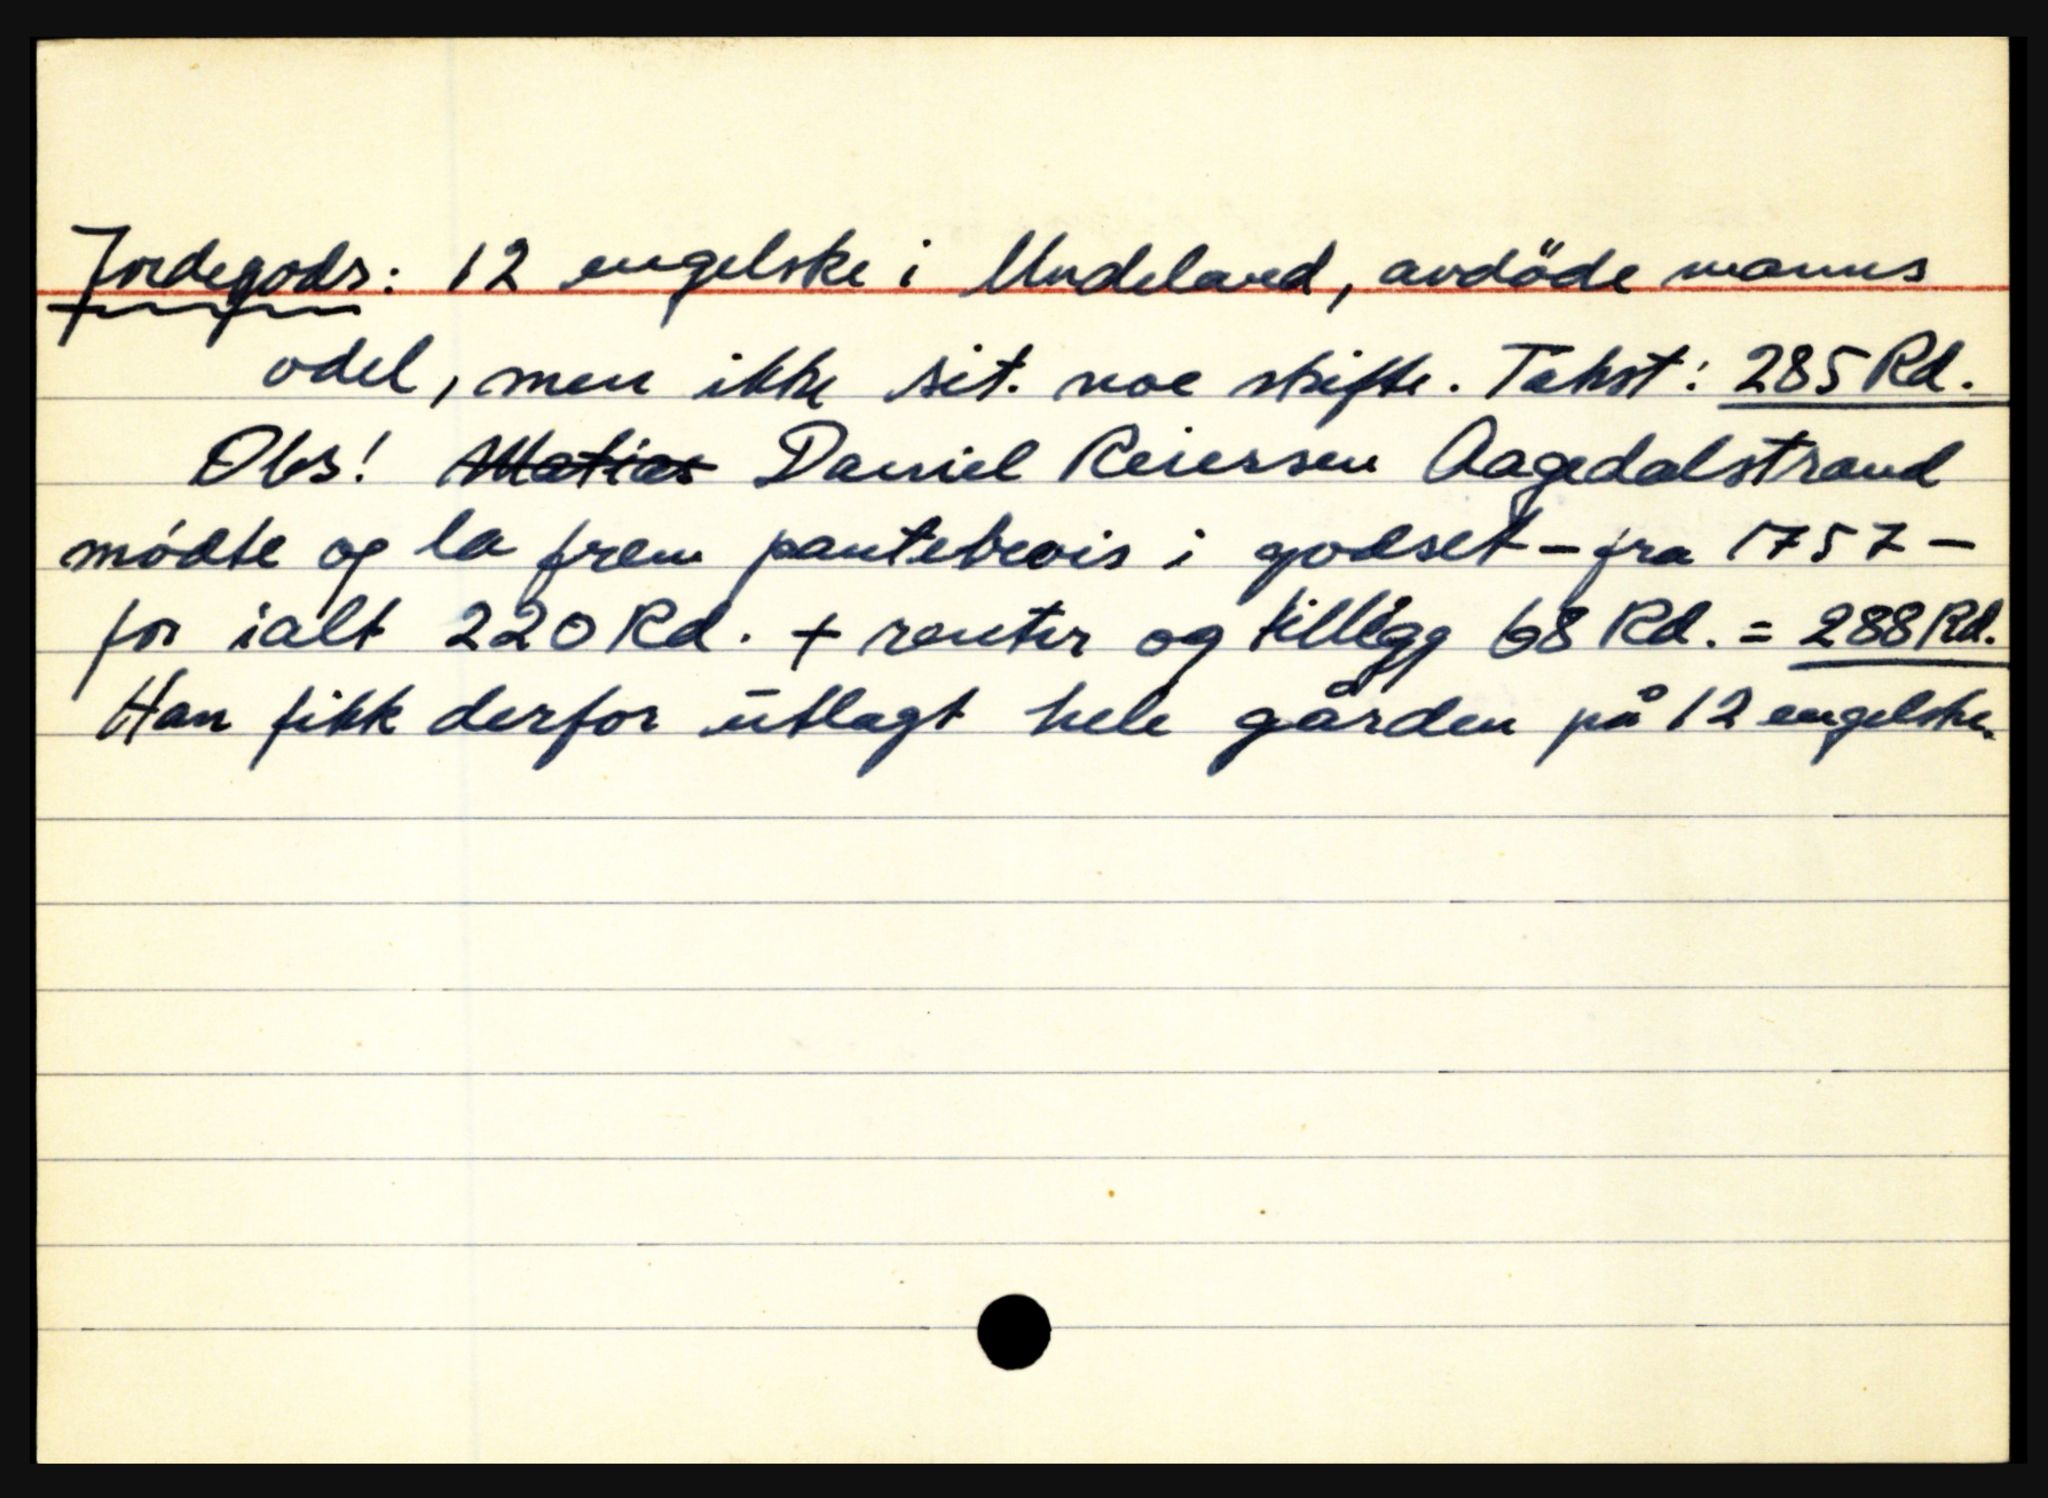 Jordegods: 12 engelske i Undeland, avdöde manns
odel, men ikke sit. noe skifte. Takst: 285 Rd.
Obs! Matias Daniel Reiersen Aagedalstrand
mödte og la frem pantebevis i godset - fra 1757 -
for ialt 220 Rd. + renter og tillegg 68 Rd. = 288 Rd.
Han fikk derfor utlagt hele gården på 12 engelske.